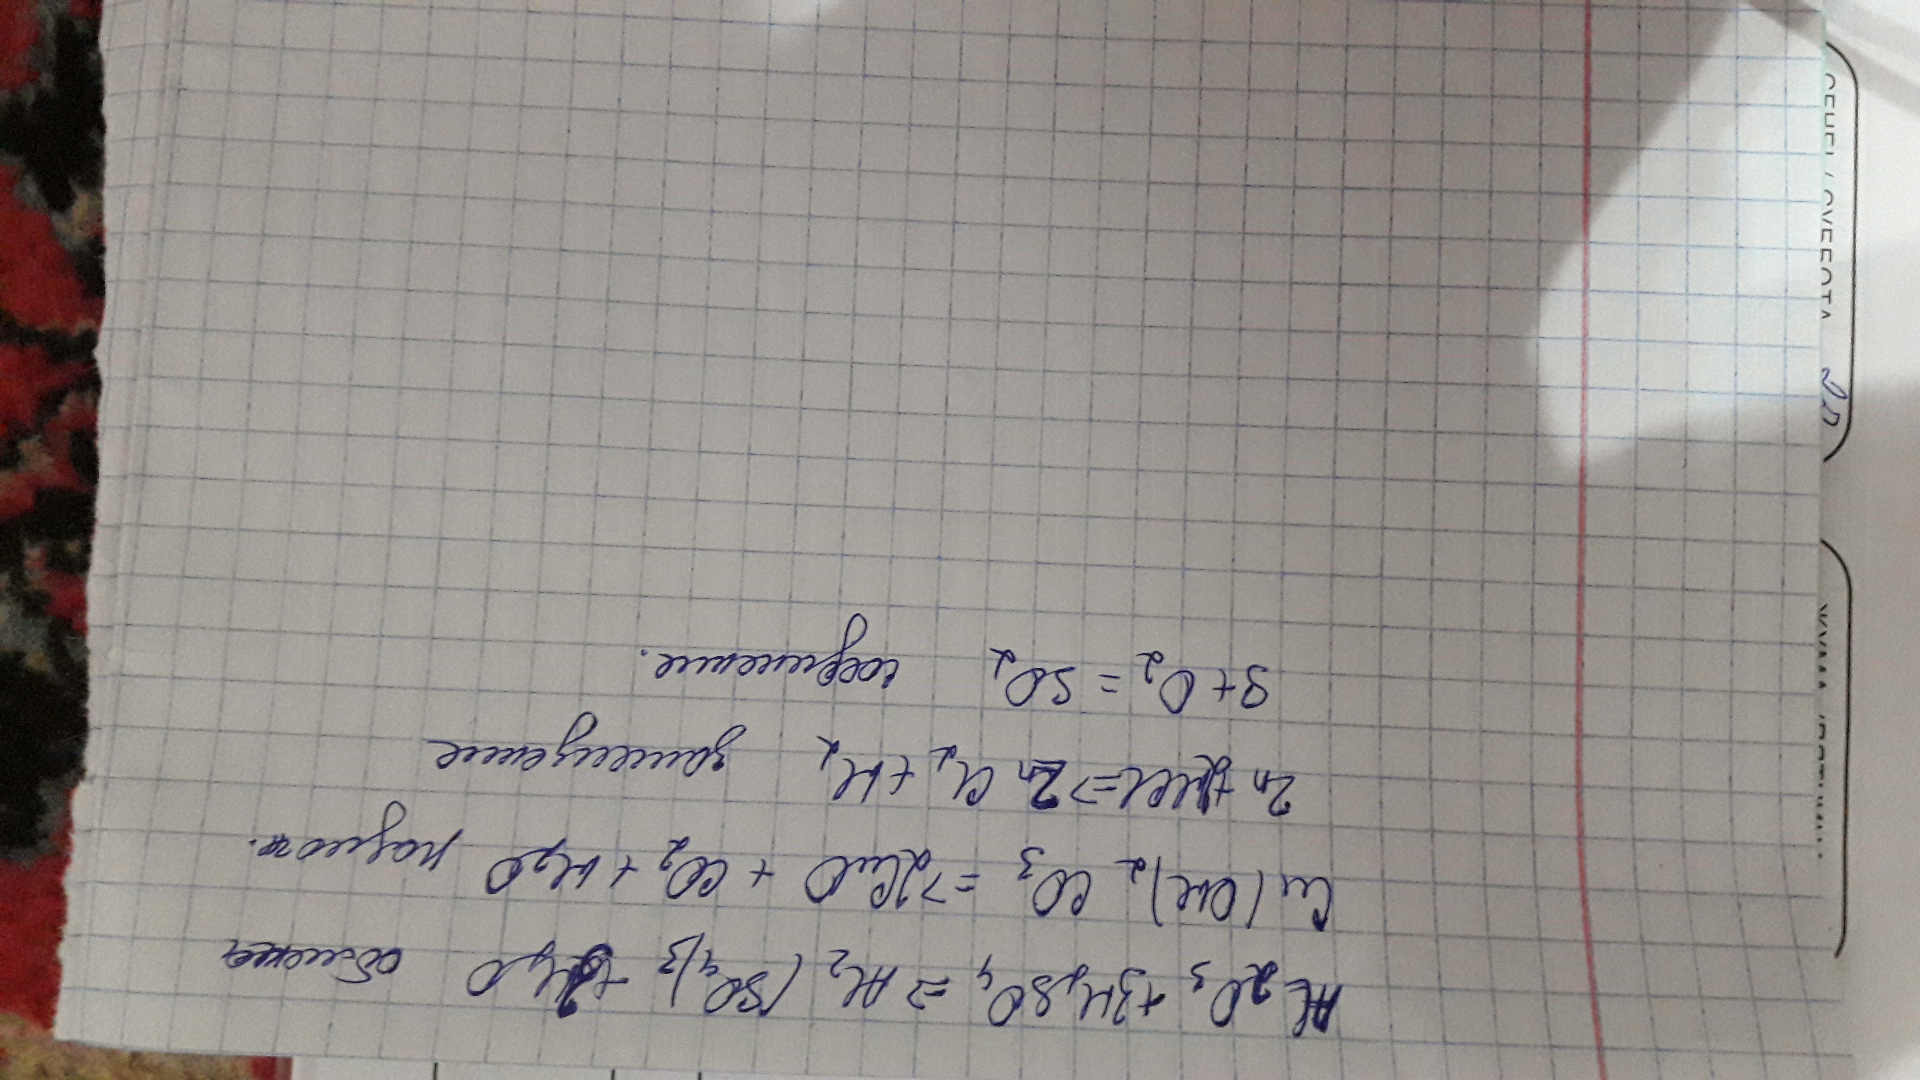 Al2O3 + 3H2SO4 => Al2(SO4)3 + 3H2O обмена
Cu(OH)2CO3 => 2CuO + CO2 + H2O разлож.
Zn + 2HCl => ZnCl2 + H2 замещение
S + O2 = SO2 соединение.